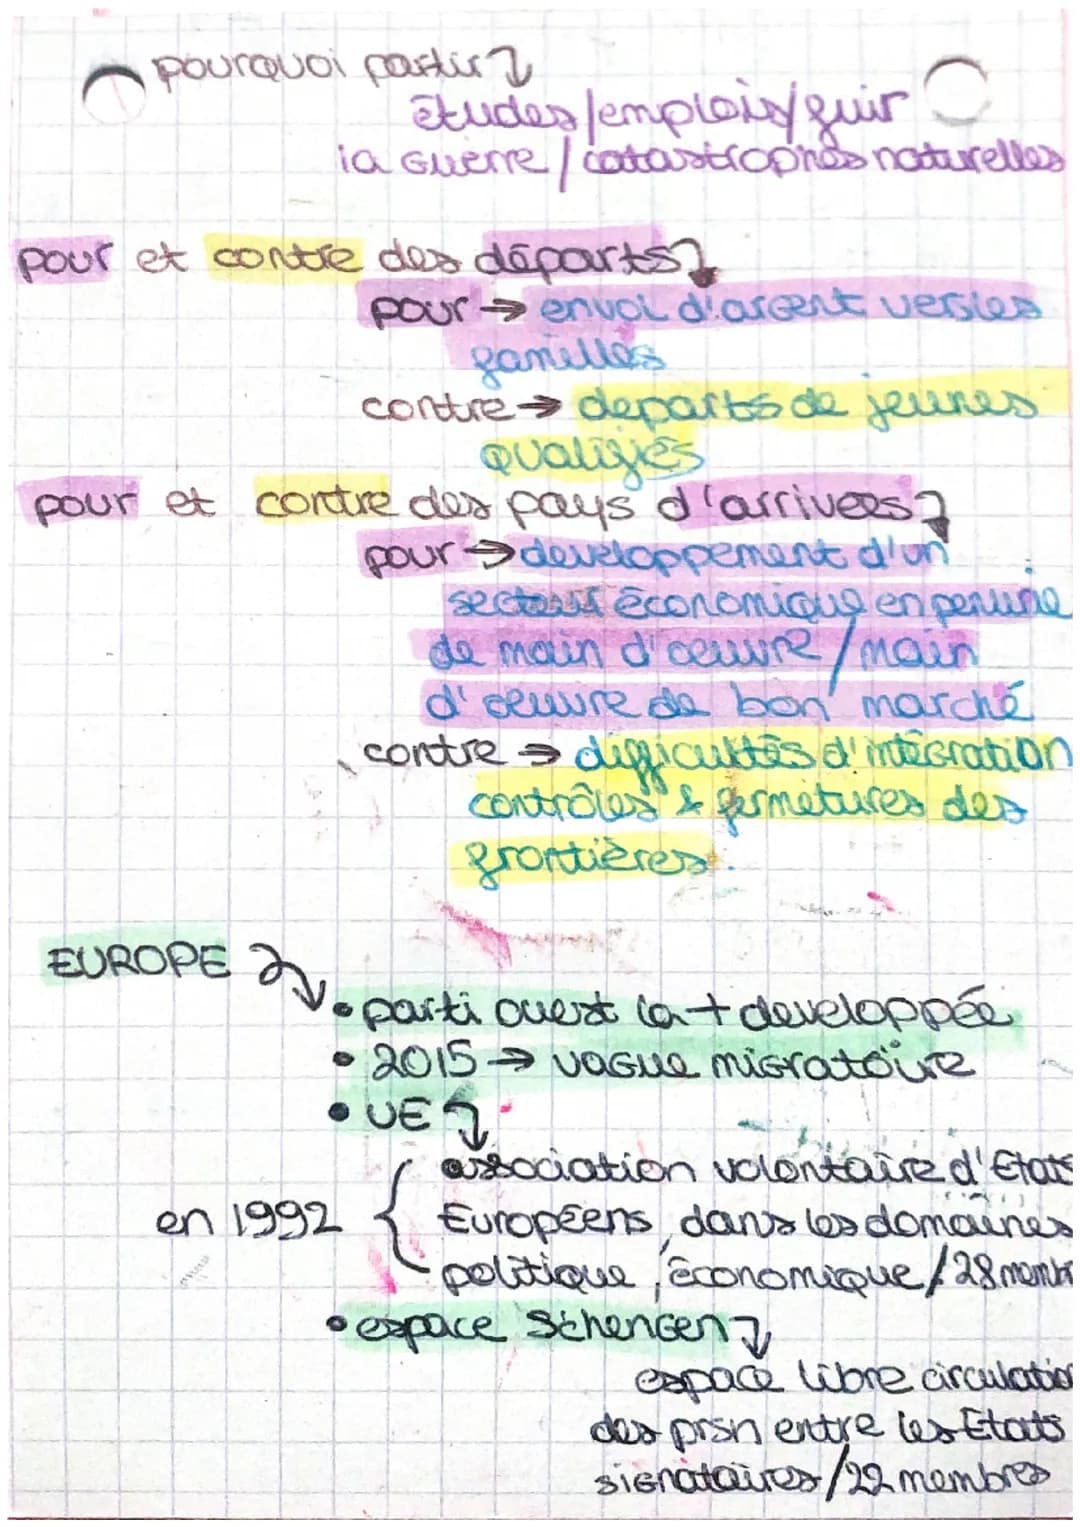 pourquoi partir
études/emplois/fuir
la guerre / catastrophes naturelles
pour et contre des départs
pour → envoi d'argent vers les
familles
contre → departs de jeunes
qualifiés
pour et contre des pays d'arrivees
pour → developpement d'un
secteur économique en penurie
de main d'oeuvre / main
d'oeuvre de bon marché
contre → difficultés d'intégration
contrôles & fermetures des
frontières.
EUROPE
• parti ouest la + developpée
• 2015 → vague migratoire
• UE
association volontaire d'Etats
en 1992 { Européens, dans les domaines
politique, économique / 28 membr
• espace Schengen
espace libre circulation
des prsn entre les Etats
signataires / 22 membres